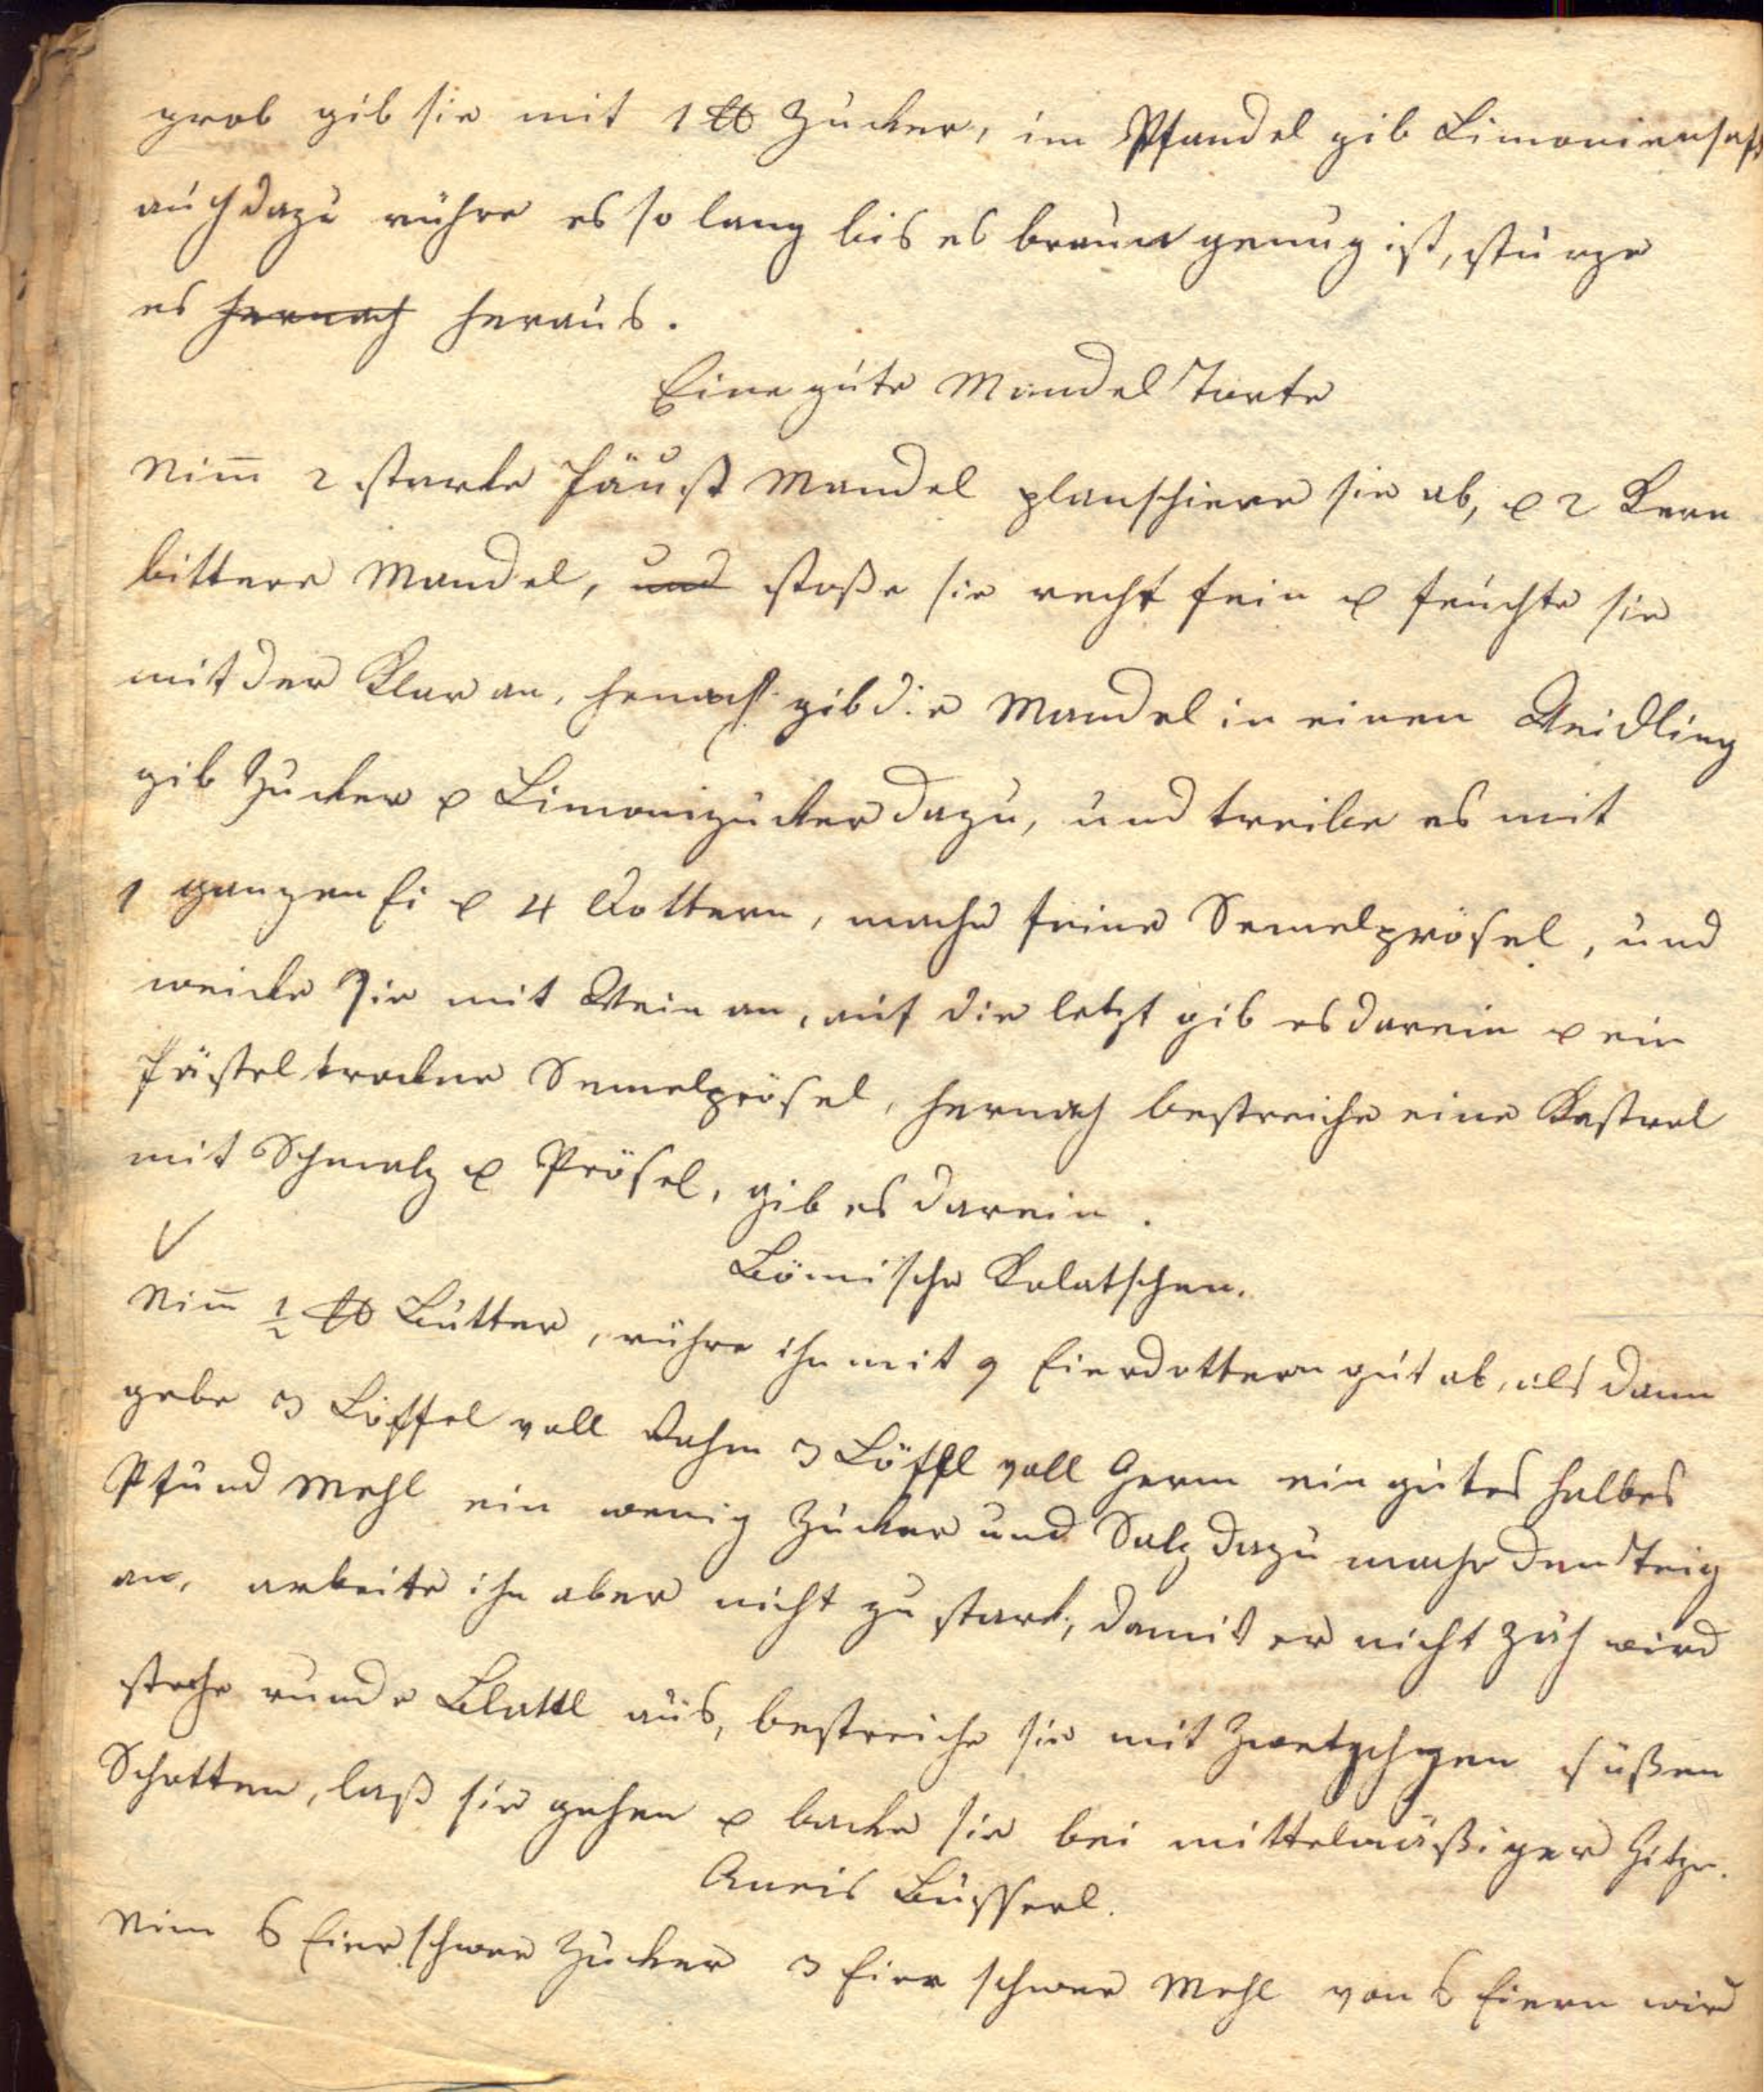 grob gib sie mit 1 ℔ Zucker, im Pfandel gib Limoniensaft
auch dazu rühre es so lang bis es braun genug ist, stürze
es hernach heraus.
Eine gute Mandel Torte
Nim̅ 2 starke Fäust Mandel planschiere sie ab, & 2 Kern
bittere Mandel, und stoße sie recht fein & feuchte sie
mit der Klar an, hernach gib die Mandel in einen Weidling
gib Zucker & Limonizucker dazu, und treibe es mit
1 ganzen Ei & 4 Dottern, mache feine Semelprösel, und
weicke sie mit Wein an, auf die letzt gib es darein & ein
Fästel trockne Semelprösel, hernach bestreiche eine Kastrol
mit Schmalz & Prösel, gib es darein.
Bömische Kolatschen.
Nim̅ ½ ℔ Butter, rühre ihn mit 9 Eierdottern gut ab, als dann
gebe 3 Löffel voll Rahm 3 Löffl voll Germ ein gutes halbes
Pfund Mehl ein wenig Zucker und Salz dazu mache den Teig
an, arbeite ihn aber nicht zu stark, damit er nicht zäh wird
steche runde Blattl aus, bestreiche sie mit Zwetschgen süßen
Schotten, laß sie gehen & backe sie bei mittelmäßiger Hitze.
Aneis Busserl.
Nim 6 Eier schwer Zucker 3 Eier schwer Mehl von 6 Eiern wird